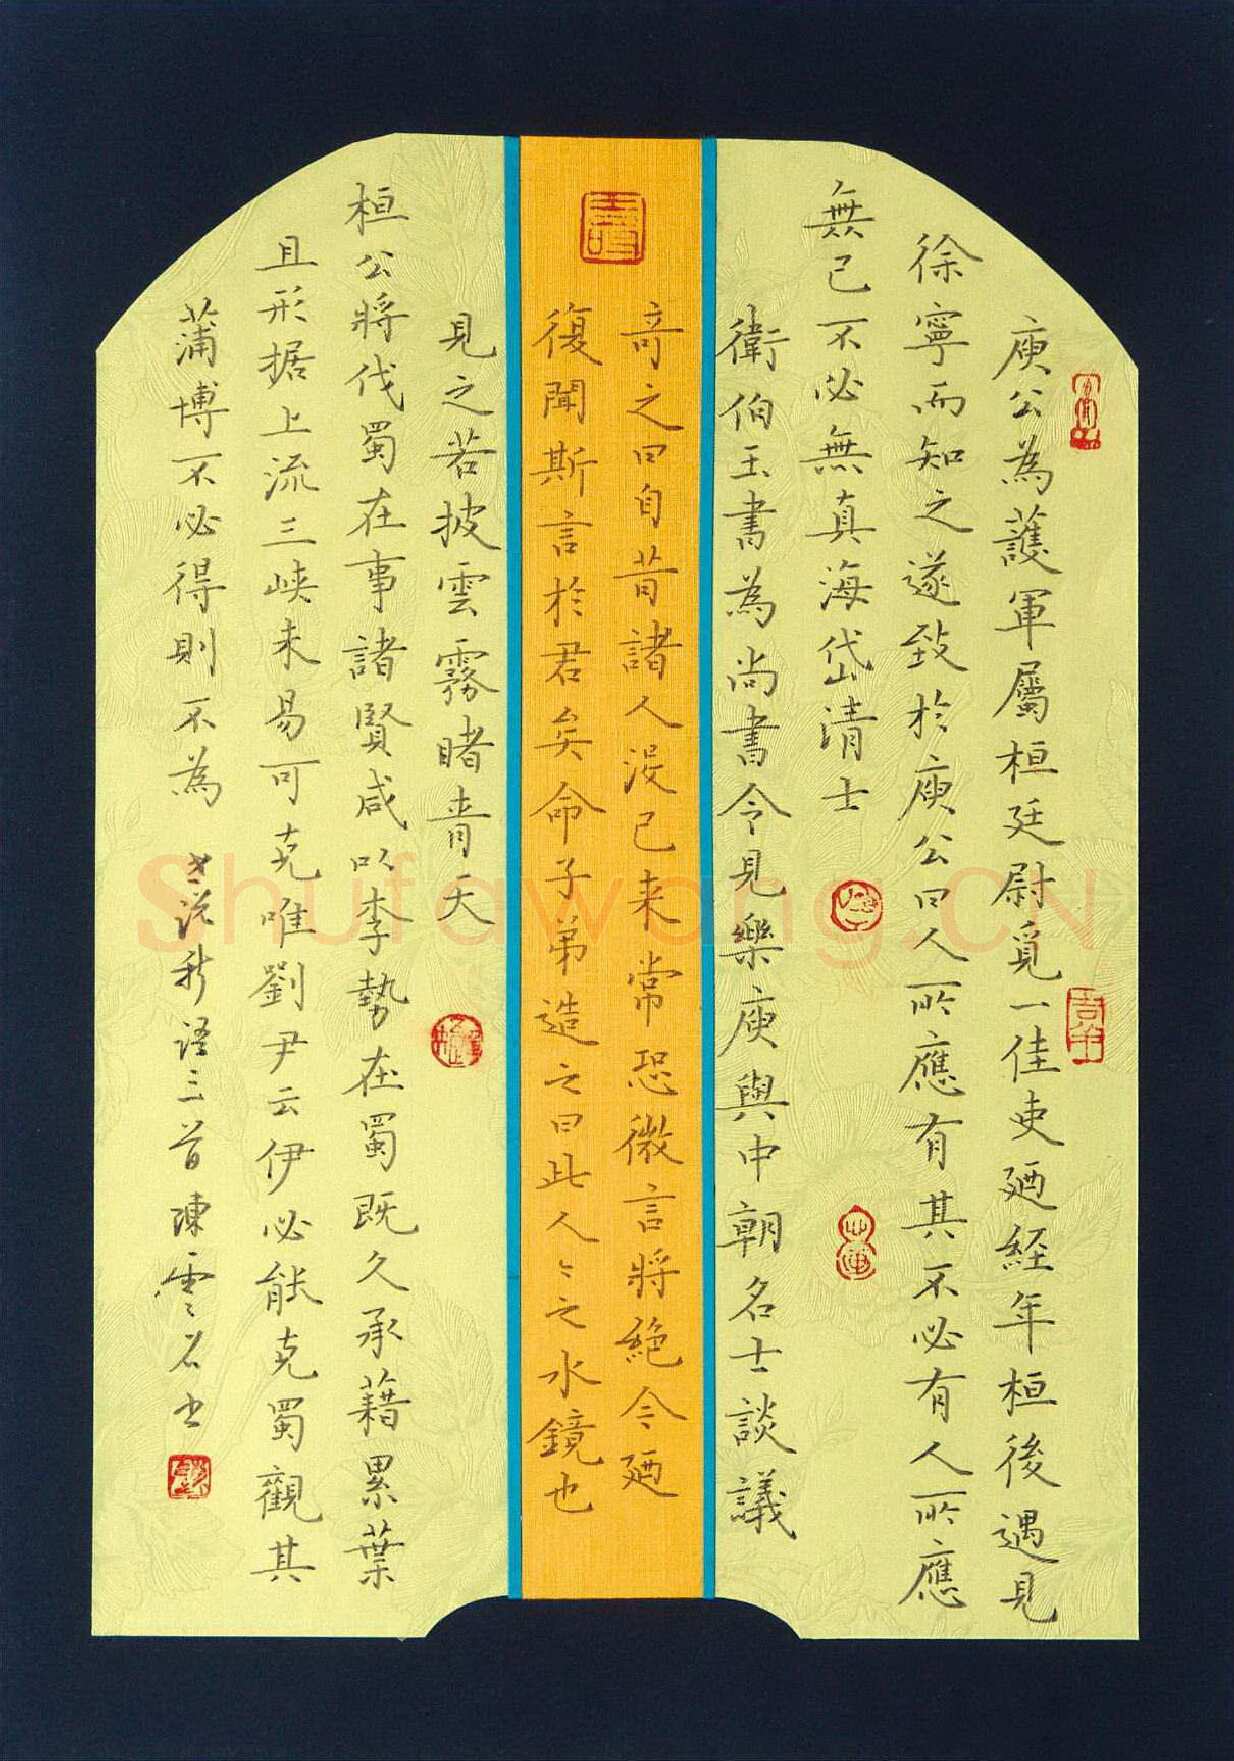 庾公為護軍屬桓廷尉覓一佳吏廼經年桓後遇見
徐寧而知之遂致於庾公曰人所應有其不必有人所應
無己不必無真海岱清士
衛伯玉書為尚書令見樂庾與中朝名士談議
奇之曰自昔諸人沒已来常恐微言將絕今廼
復聞斯言於君矣命子弟造之曰此人人之水鏡也
見之若披雲霧睹青天
桓公將伐蜀在事諸賢咸以李勢在蜀既久承藉累葉
且形据上流三峡未易可克唯劉尹云伊必能克蜀觀其
蒲博不必得則不為 世说新語三首 陳雲名书
Shufawang.CN